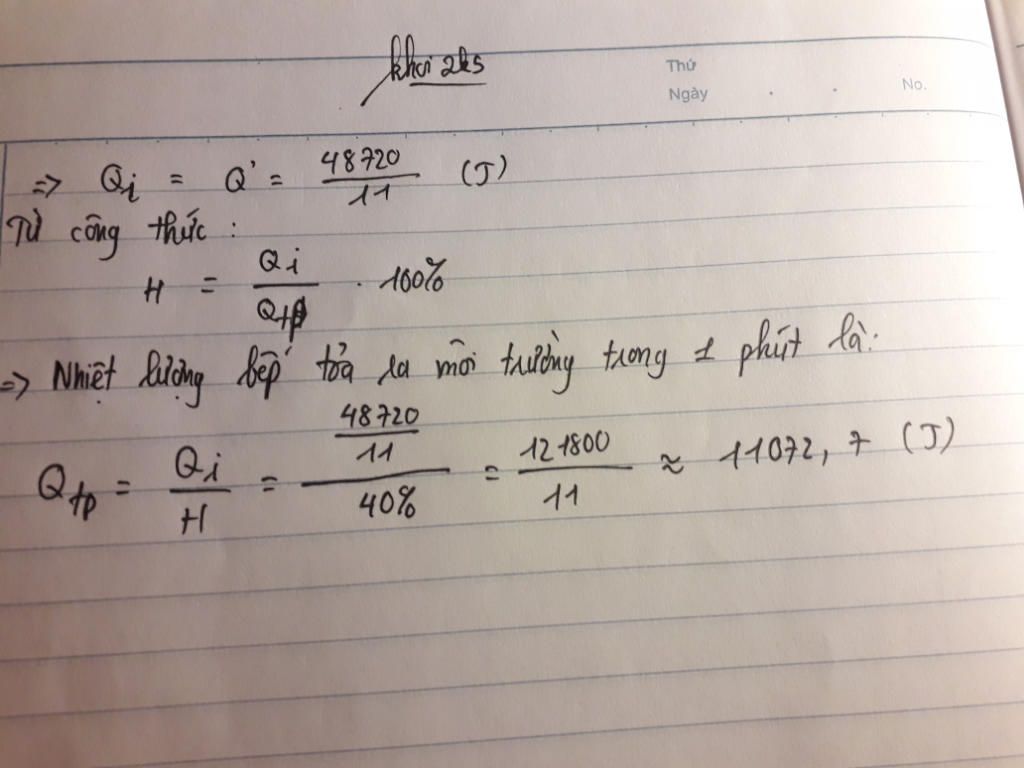 khơi 2k5
Thứ
Ngày . . No.
=> Qi = Q' = 48720/11 (J)
Từ công thức :
H = Qi/Qtp . 100%
=> Nhiệt lượng bếp tỏa ra môi trường trong 1 phút là:
Qtp = Qi/H = (48720/11)/40% = 121800/11 ≈ 11072,7 (J)